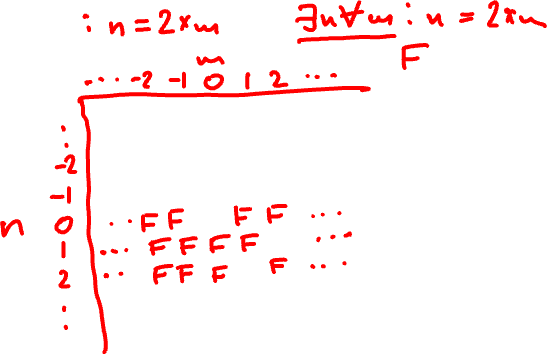 : n = 2×m ∃n∀m : n = 2×m
F
m
... -2 -1 0 1 2 ...
:
-2
-1
n 0 ... F F F F ...
1 ... F F F F ...
2 ... F F F F ...
: